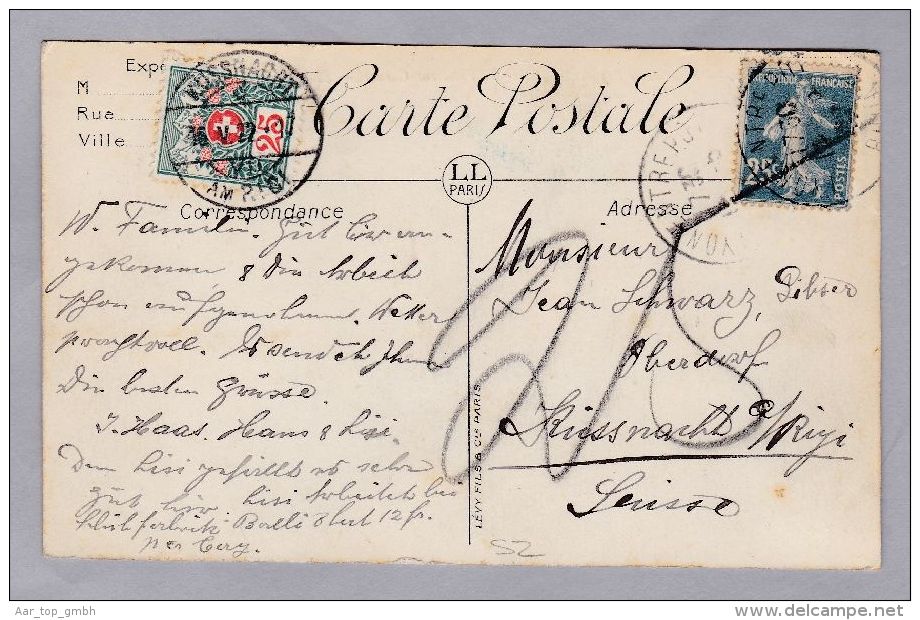 Carte Postale
M
Rue
Ville
LL
PARIS
Correspondance
Adresse
W. Familie. Gut hier an-
gekommen, & die Arbeit
schon aufgenohmen. Wetter
prachtvoll. Es sendet Ihnen
Die besten Grüsse.
J. Haas. Hans & Lisi.
Dem Lisi gefällt es sehr
gut hier. Lisi Arbeitet bei
12 fr.
per
Monsieur
Jean Schwarz,
Oberdorf
Küssnacht a/Rigi
Suisse
25
LÉVY FILS & Cie PARIS
SZ
RÉPUBLIQUE FRANÇAISE
25
POSTES
25
AM RIGI
Aar_top_gmbh
www.delcampe.net